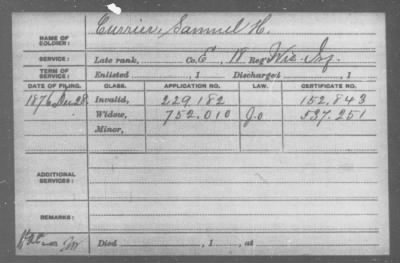 NAME OF SOLDIER: Currier, Samuel H.
SERVICE: Late rank, Co. E, 18 Reg't Wis. Inf.
TERM OF SERVICE: Enlisted , 1 Discharged , 1
DATE OF FILING. CLASS. APPLICATION NO. LAW. CERTIFICATE NO.
1876 Dec 28 Invalid, 229.182 152.843
Widow, 752.010 537.251
Minor,
ADDITIONAL SERVICES:
REMARKS:
Died , 1 , at